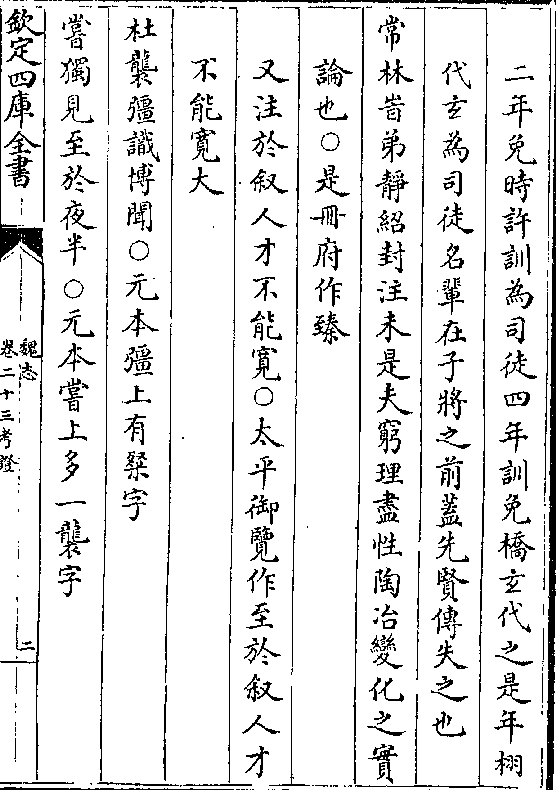 二年免時許訓為司徒四年訓免橋玄代之是年栩
代玄為司徒名輩在子將之前蓋先賢傳失之也
常林峕弟靜紹封注未是夫窮理盡性陶冶變化之實
論也○是冊府作臻
又注於叙人才不能寛○太平御覽作至於叙人才
不能寛大
杜襲彊識博聞○元本彊上有粲字
嘗獨見至於夜半○元本嘗上多一襲字
欽定四庫全書
魏志
卷二十三考證
二